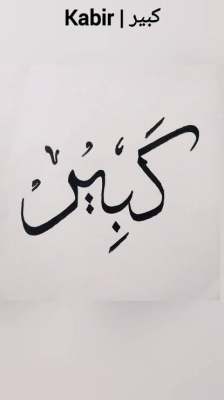 Kabir | كبير
كَبِيْر